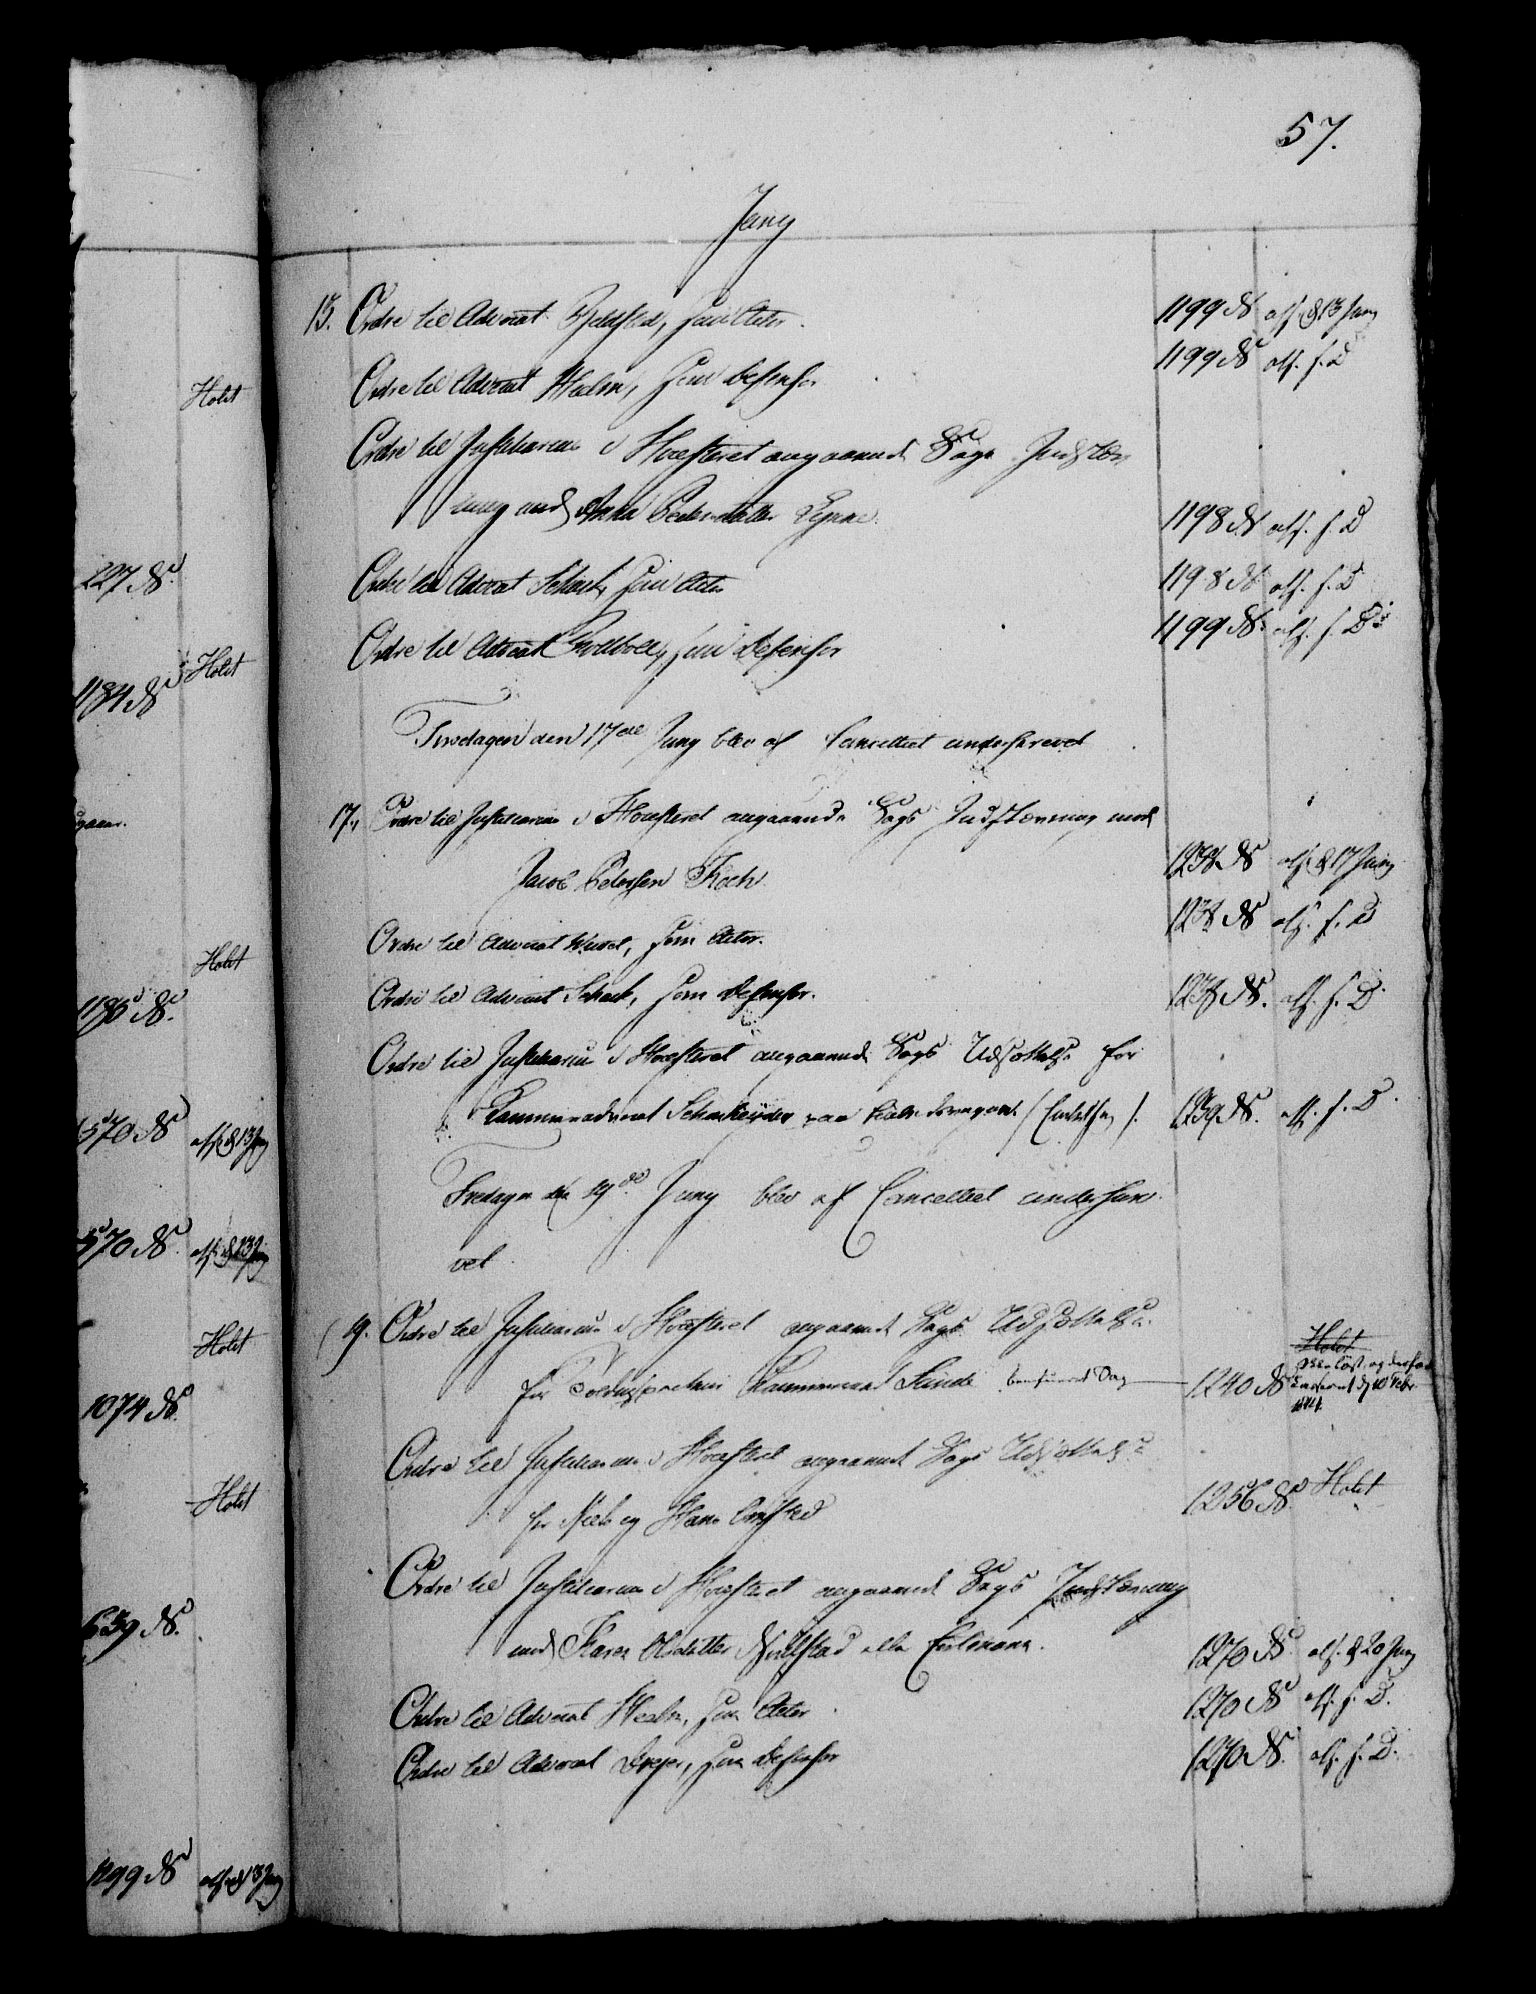 57.
Juny
13. Ordre til Advocat Bjelsted, som Actor. 1199 N afs. d 13 Juny
Ordre til Advocat Holm, som Defensor 1199 N afs. s. D
Ordre til Justitiarius i Høiesteret angaaende Sags Indstæv
ning mod Anna Pedersdatter 1198 N afs. s. D
Ordre til Advocat Schack, som Actor 1198 N afs. s. D
Ordre til Advocat som Defensor 1199 N. afs. s. D
Tirsdagen den 17de Juny blev af Cancelliet underskrevet
17. Ordre til Justitiarius i Høiesteret angaaende Sags Indstævning mod
Jacob Pedersen Koch 1238 N afs. d 17 Juny
Ordre til Advocat som Actor. 1238 N afs. s. D
Ordre til Advocat Schack, som Defensor. 1238 N. afs. s. D.
Ordre til Justitiarius i Høiesteret angaaende Sags Udsættelse for
Kammeradvocat 1239 N. afs. s. D.
Fredagen den 19de Juny blev af Cancelliet underskre
vet
19. Ordre til Justitiarius i Høiesteret angaaende Sags Udsættelse
for Kammerraad Sunde Sag 1240 N Holst
Ordre til Justitiarius i Høiesteret angaaende Sags Udsættelse
for Niels og Hans 1256 N. Holst
Ordre til Justitiarius i Høiesteret angaaende Sags Indstævning
mod Karen Olsdatter eller 1270 N. afs. d 20 Juny
Ordre til Advocat Holm, som Actor 1270 N afs. s. D.
Ordre til Advocat som Defensor 1270 N. afs. s. D.
Holst
227 N.
1184 N Holst
Holst
1195 N.
570 N afs. d 13 Juny
570 N. afs. d 13 Juny
Holst
1074 N.
Holst
639 N.
1199 N afs. d 13 Juny